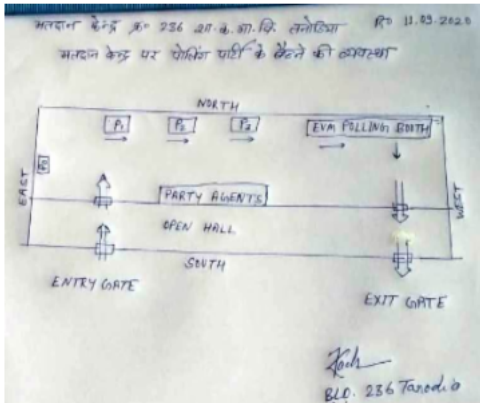 मतदान केन्द्र क्र० 236 शा.क.मा.वि. तनोडिया
दि० 11.09.2020
मतदान केन्द्र पर पोलिंग पार्टी के बैठने की व्यवस्था
NORTH
P1 P2 P3 EVM POLLING BOOTH
EAST
WEST
PARTY AGENTS
OPEN HALL
SOUTH
ENTRY GATE
EXIT GATE
BLO. 236 Tanodia